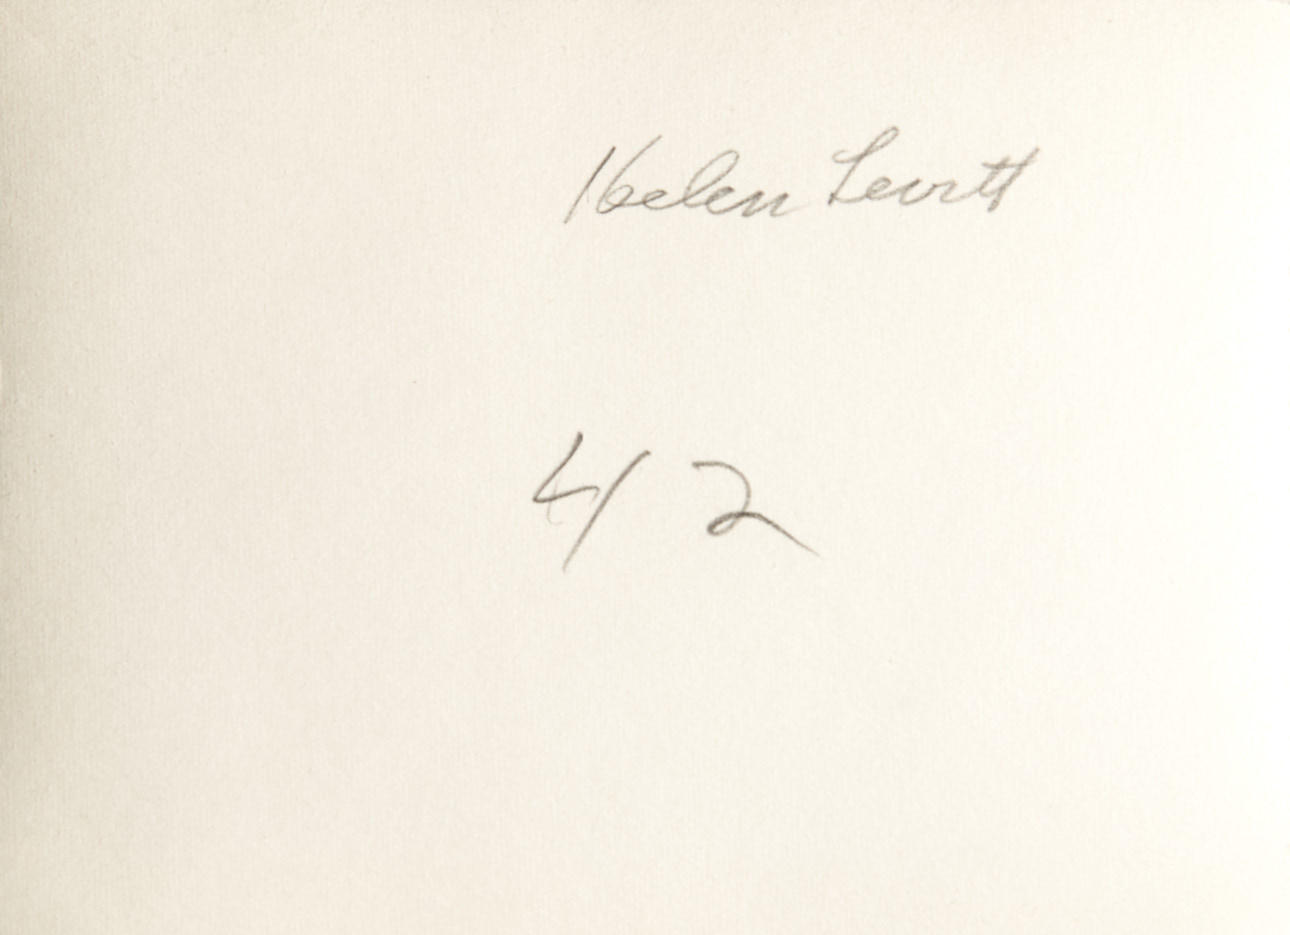 Helen Levitt
42